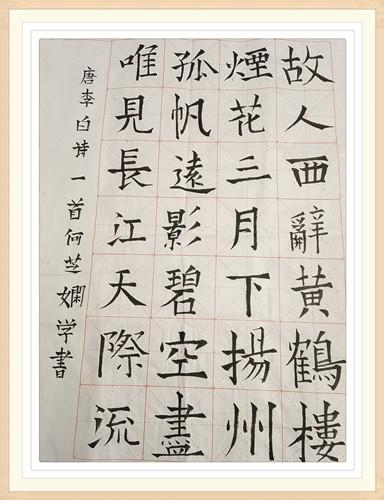 故人西辭黃鶴樓
煙花三月下揚州
孤帆遠影碧空盡
唯見長江天際流
唐李白诗一首何芝嫻学書